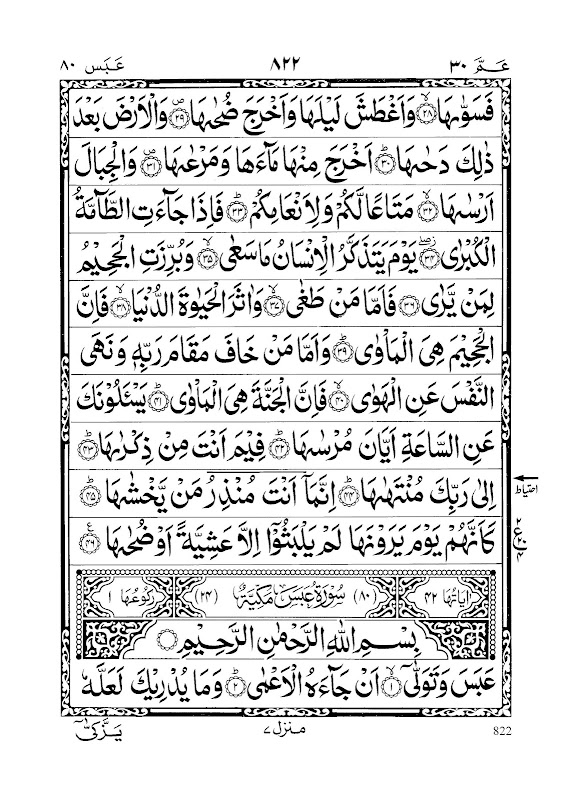 عَمَّ ٣٠ ٨٢٢ عَبَسَ ٨٠
فَسَوّٰىهَا ۙ﴿۲۸﴾ وَاَغْطَشَ لَيْلَهَا وَاَخْرَجَ ضُحٰىهَا ۪﴿۲۹﴾ وَالْاَرْضَ بَعْدَ
ذٰلِكَ دَحٰىهَا ؕ﴿۳۰﴾ اَخْرَجَ مِنْهَا مَآءَهَا وَمَرْعٰىهَا ۪﴿۳۱﴾ وَالْجِبَالَ
اَرْسٰىهَا ۙ﴿۳۲﴾ مَتَاعًا لَّكُمْ وَلِاَنْعَامِكُمْ ؕ﴿۳۳﴾ فَاِذَا جَآءَتِ الطَّآمَّةُ
الْكُبْرٰى ۖ﴿۳۴﴾ يَوْمَ يَتَذَكَّرُ الْاِنْسَانُ مَا سَعٰى ۙ﴿۳۵﴾ وَبُرِّزَتِ الْجَحِيْمُ
لِمَنْ يَّرٰى ﴿۳۶﴾ فَاَمَّا مَنْ طَغٰى ۙ﴿۳۷﴾ وَاٰثَرَ الْحَيٰوةَ الدُّنْيَا ۙ﴿۳۸﴾ فَاِنَّ
الْجَحِيْمَ هِىَ الْمَاْوٰى ؕ﴿۳۹﴾ وَاَمَّا مَنْ خَافَ مَقَامَ رَبِّهٖ وَنَهَى
النَّفْسَ عَنِ الْهَوٰى ۙ﴿۴۰﴾ فَاِنَّ الْجَنَّةَ هِىَ الْمَاْوٰى ؕ﴿۴۱﴾ يَسْئَلُوْنَكَ
عَنِ السَّاعَةِ اَيَّانَ مُرْسٰىهَا ؕ﴿۴۲﴾ فِيْمَ اَنْتَ مِنْ ذِكْرٰىهَا ؕ﴿۴۳﴾
اِلٰى رَبِّكَ مُنْتَهٰىهَا ؕ﴿۴۴﴾ اِنَّمَآ اَنْتَ مُنْذِرُ مَنْ يَّخْشٰىهَا ؕ﴿۴۵﴾
احتیاط
كَاَنَّهُمْ يَوْمَ يَرَوْنَهَا لَمْ يَلْبَثُوْٓا اِلَّا عَشِيَّةً اَوْ ضُحٰىهَا ﴿۴۶﴾
اٰيَاتُهَا ٤٢ (٨٠) سُوْرَةُ عَبَسَ مَكِّيَّةٌ (٢٤) رُكُوْعُهَا ١
بِسْمِ اللّٰهِ الرَّحْمٰنِ الرَّحِيْمِ
عَبَسَ وَتَوَلّٰٓى ۙ﴿۱﴾ اَنْ جَآءَهُ الْاَعْمٰى ؕ﴿۲﴾ وَمَا يُدْرِيْكَ لَعَلَّهٗ
822 منزل ٧ يَزَّكّٰٓى